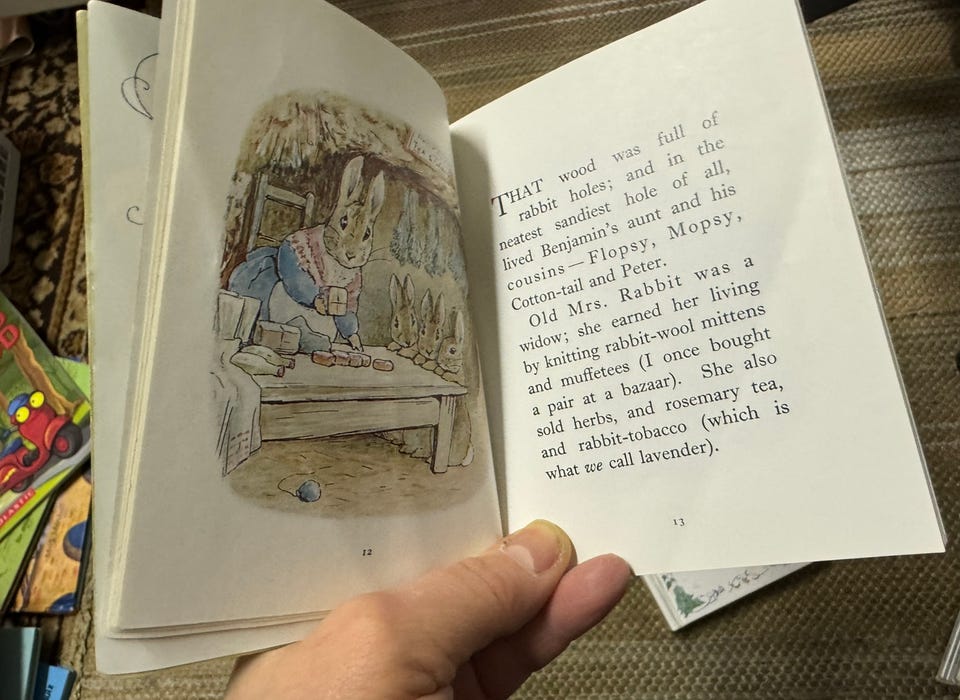 12
THAT wood was full of
rabbit holes; and in the
neatest sandiest hole of all,
lived Benjamin's aunt and his
cousins—Flopsy, Mopsy,
Cotton-tail and Peter.
Old Mrs. Rabbit was a
widow; she earned her living
by knitting rabbit-wool mittens
and muffetees (I once bought
a pair at a bazaar). She also
sold herbs, and rosemary tea,
and rabbit-tobacco (which is
what we call lavender).
13